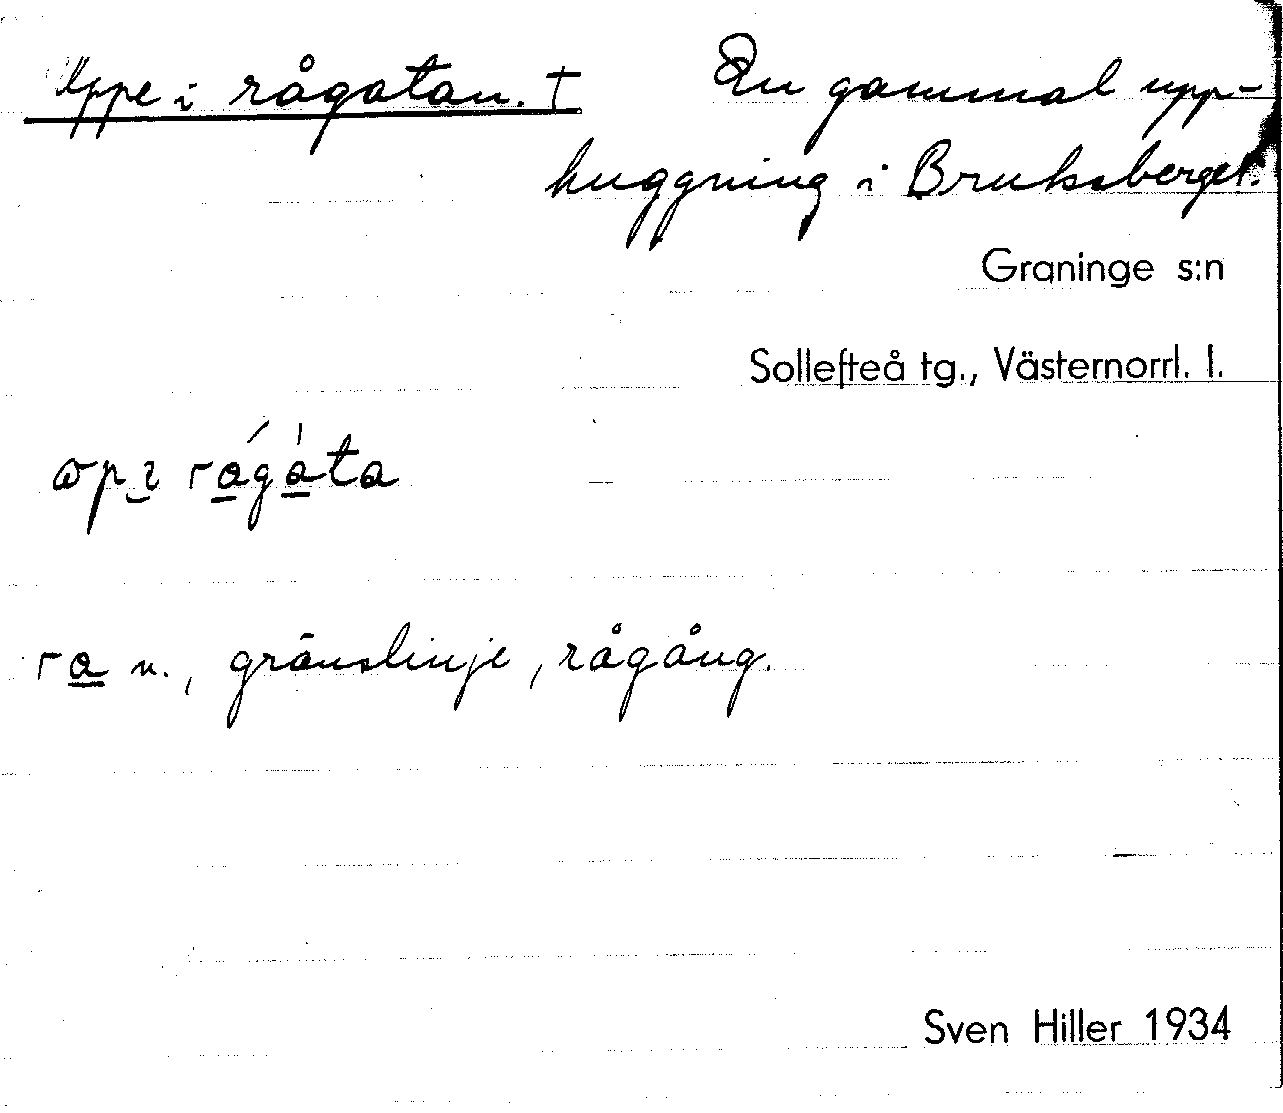 Uppe i rågatan. † En gammal upp-
huggning i Bruksberget.
Graninge s:n
Sollefteå tg., Västernorrl. l.
råg̀ata
ra n., gränslinje, rågång.
Sven Hiller 1934